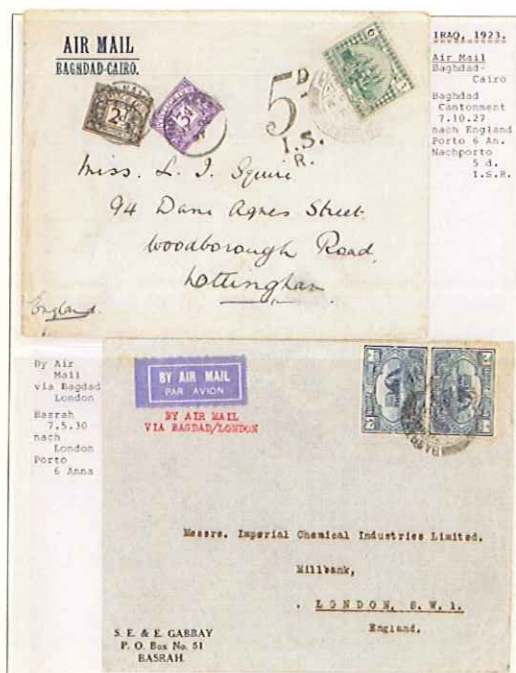 AIR MAIL
BAGHDAD-CAIRO.
2d
3d
5D.
I.S.
R.
Miss. L. J. Squire
94 Dane Agnes Street.
Woodborough Road,
Nottingham
England.
IRAQ, 1923.
Air Mail
Baghdad-
Cairo
Baghdad
Cantonment
7.10.27
nach England
Porto 6 An.
Nachporto
5 d.
I.S.R.
By Air
Mail
via Bagdad
London
Basrah
7.5.30
nach
London
Porto
6 Anna
BY AIR MAIL
PAR AVION
BY AIR MAIL
VIA BAGDAD/LONDON
Messrs. Imperial Chemical Industries Limited.
Millbank,
LONDON, S.W.1.
England.
S. E. & E. GABBAY
P. O. Box No. 51
BASRAH.